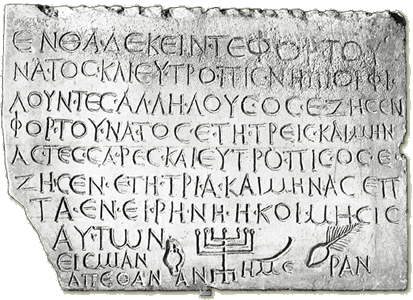 ΕΝΘΑΔΕΚΕΙΝΤΕΦΟΡΤΟΥ
ΝΑΤΟϹ·ΚΑΙΕΥΤΡΟΠΙϹΝΗΠΙΟΙΡΦΙ
ΛΟΥΝΤΕϹΑΛΛΗΛΟΥϹΟϹΕΖΗϹΕΝ
ΦΟΡΤΟΥ·ΝΑΤΟϹ·ΕΤΗ·ΤΡΕΙϹ·ΚΑΙΜΗΝ
ΑϹΤΕϹϹΑΡΕϹ·ΚΑΙΕΥΤΡΟ·ΠΙϹΟϹ·Ε
ΖΗϹΕΝ·ΕΤΗ·ΤΡΙ·Α·ΚΑΙΜΗΝΑϹΕΠ
ΤΑ·ΕΝ·ΕΙ·ΡΗΝΗ·Η·ΚΟΙ·ΜΗϹΙϹ
ΑΥ·ΤΩΝ
ΕΙϹΜΙΑΝ
ΑΠΕΘΑΝ ΑΝ ΗΜΕ ΡΑΝ